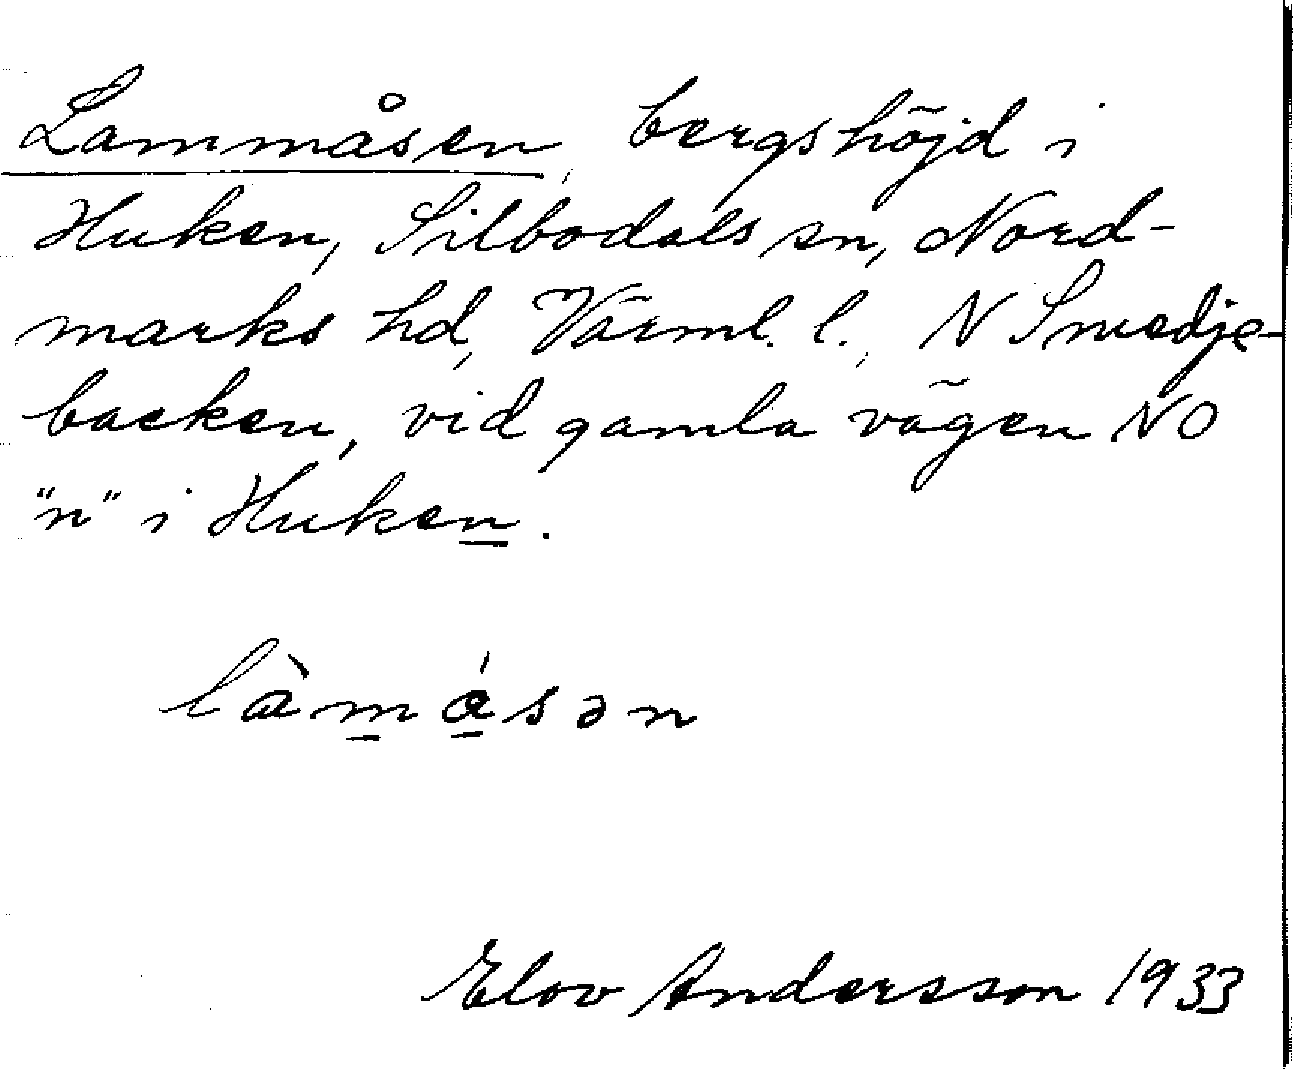 Lammåsen, bergshöjd i
Huken, Silbodals sn, Nord-
marks hd, Värml. l., N Smedje-
backen, vid gamla vägen NO
"n" i Huken.
làmåsən
Elov Andersson 1933